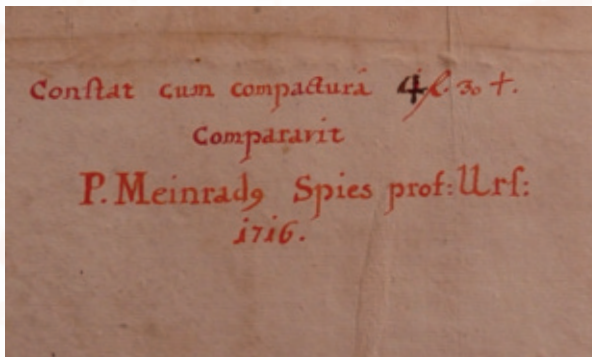 Conſtat cum compacturâ 4 fl. 30 +.
Comparavit
P. Meinradꝰ Spies prof: Urſ:
1716.